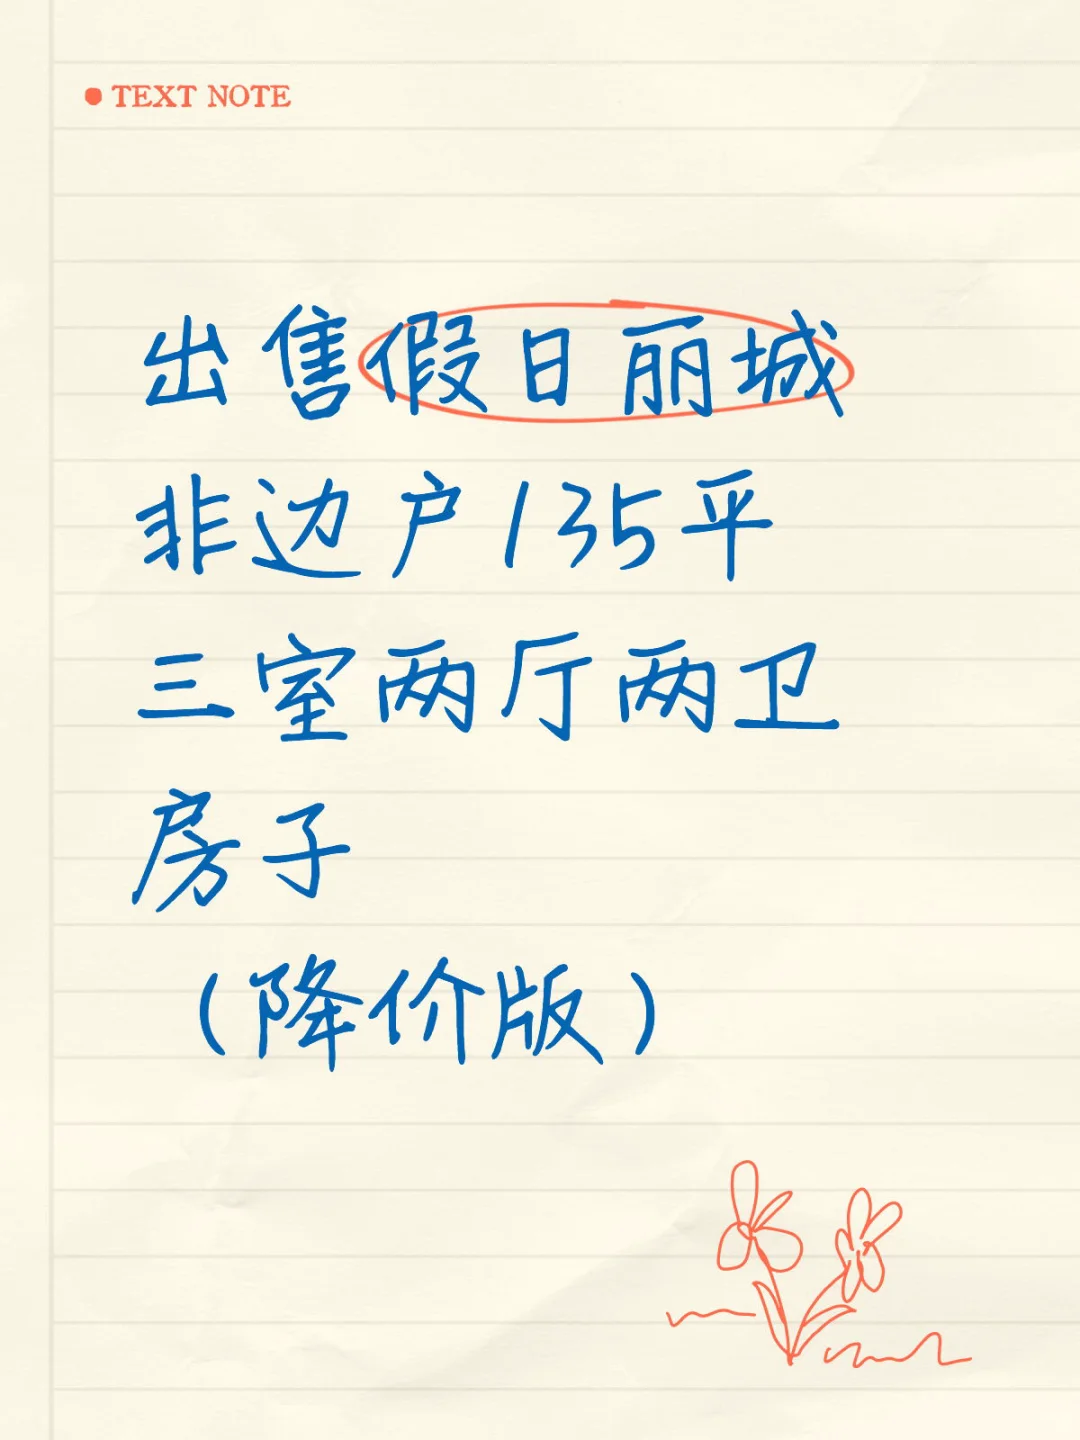 TEXT NOTE
出售假日丽城
非边户135平
三室两厅两卫
房子
（降价版）